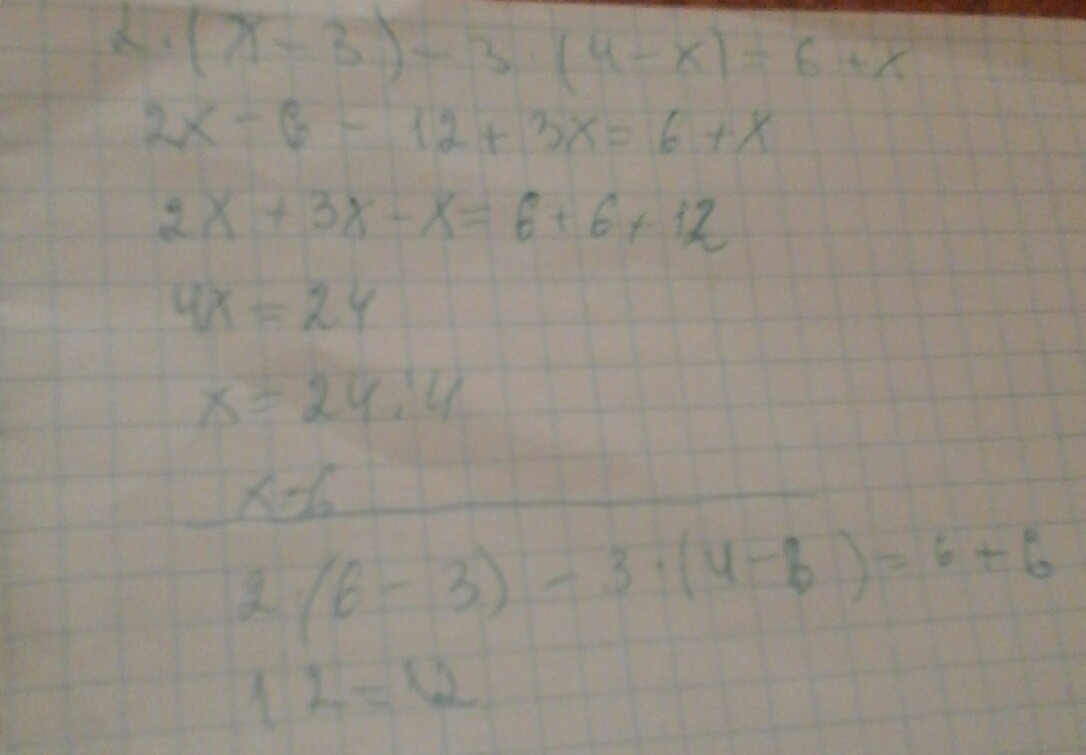 2·(x-3)-3·(4-x)=6+x
2x-6-12+3x=6+x
2x+3x-x=6+6+12
4x=24
x=24:4
x=6
2(6-3)-3·(4-6)=6+6
12=12